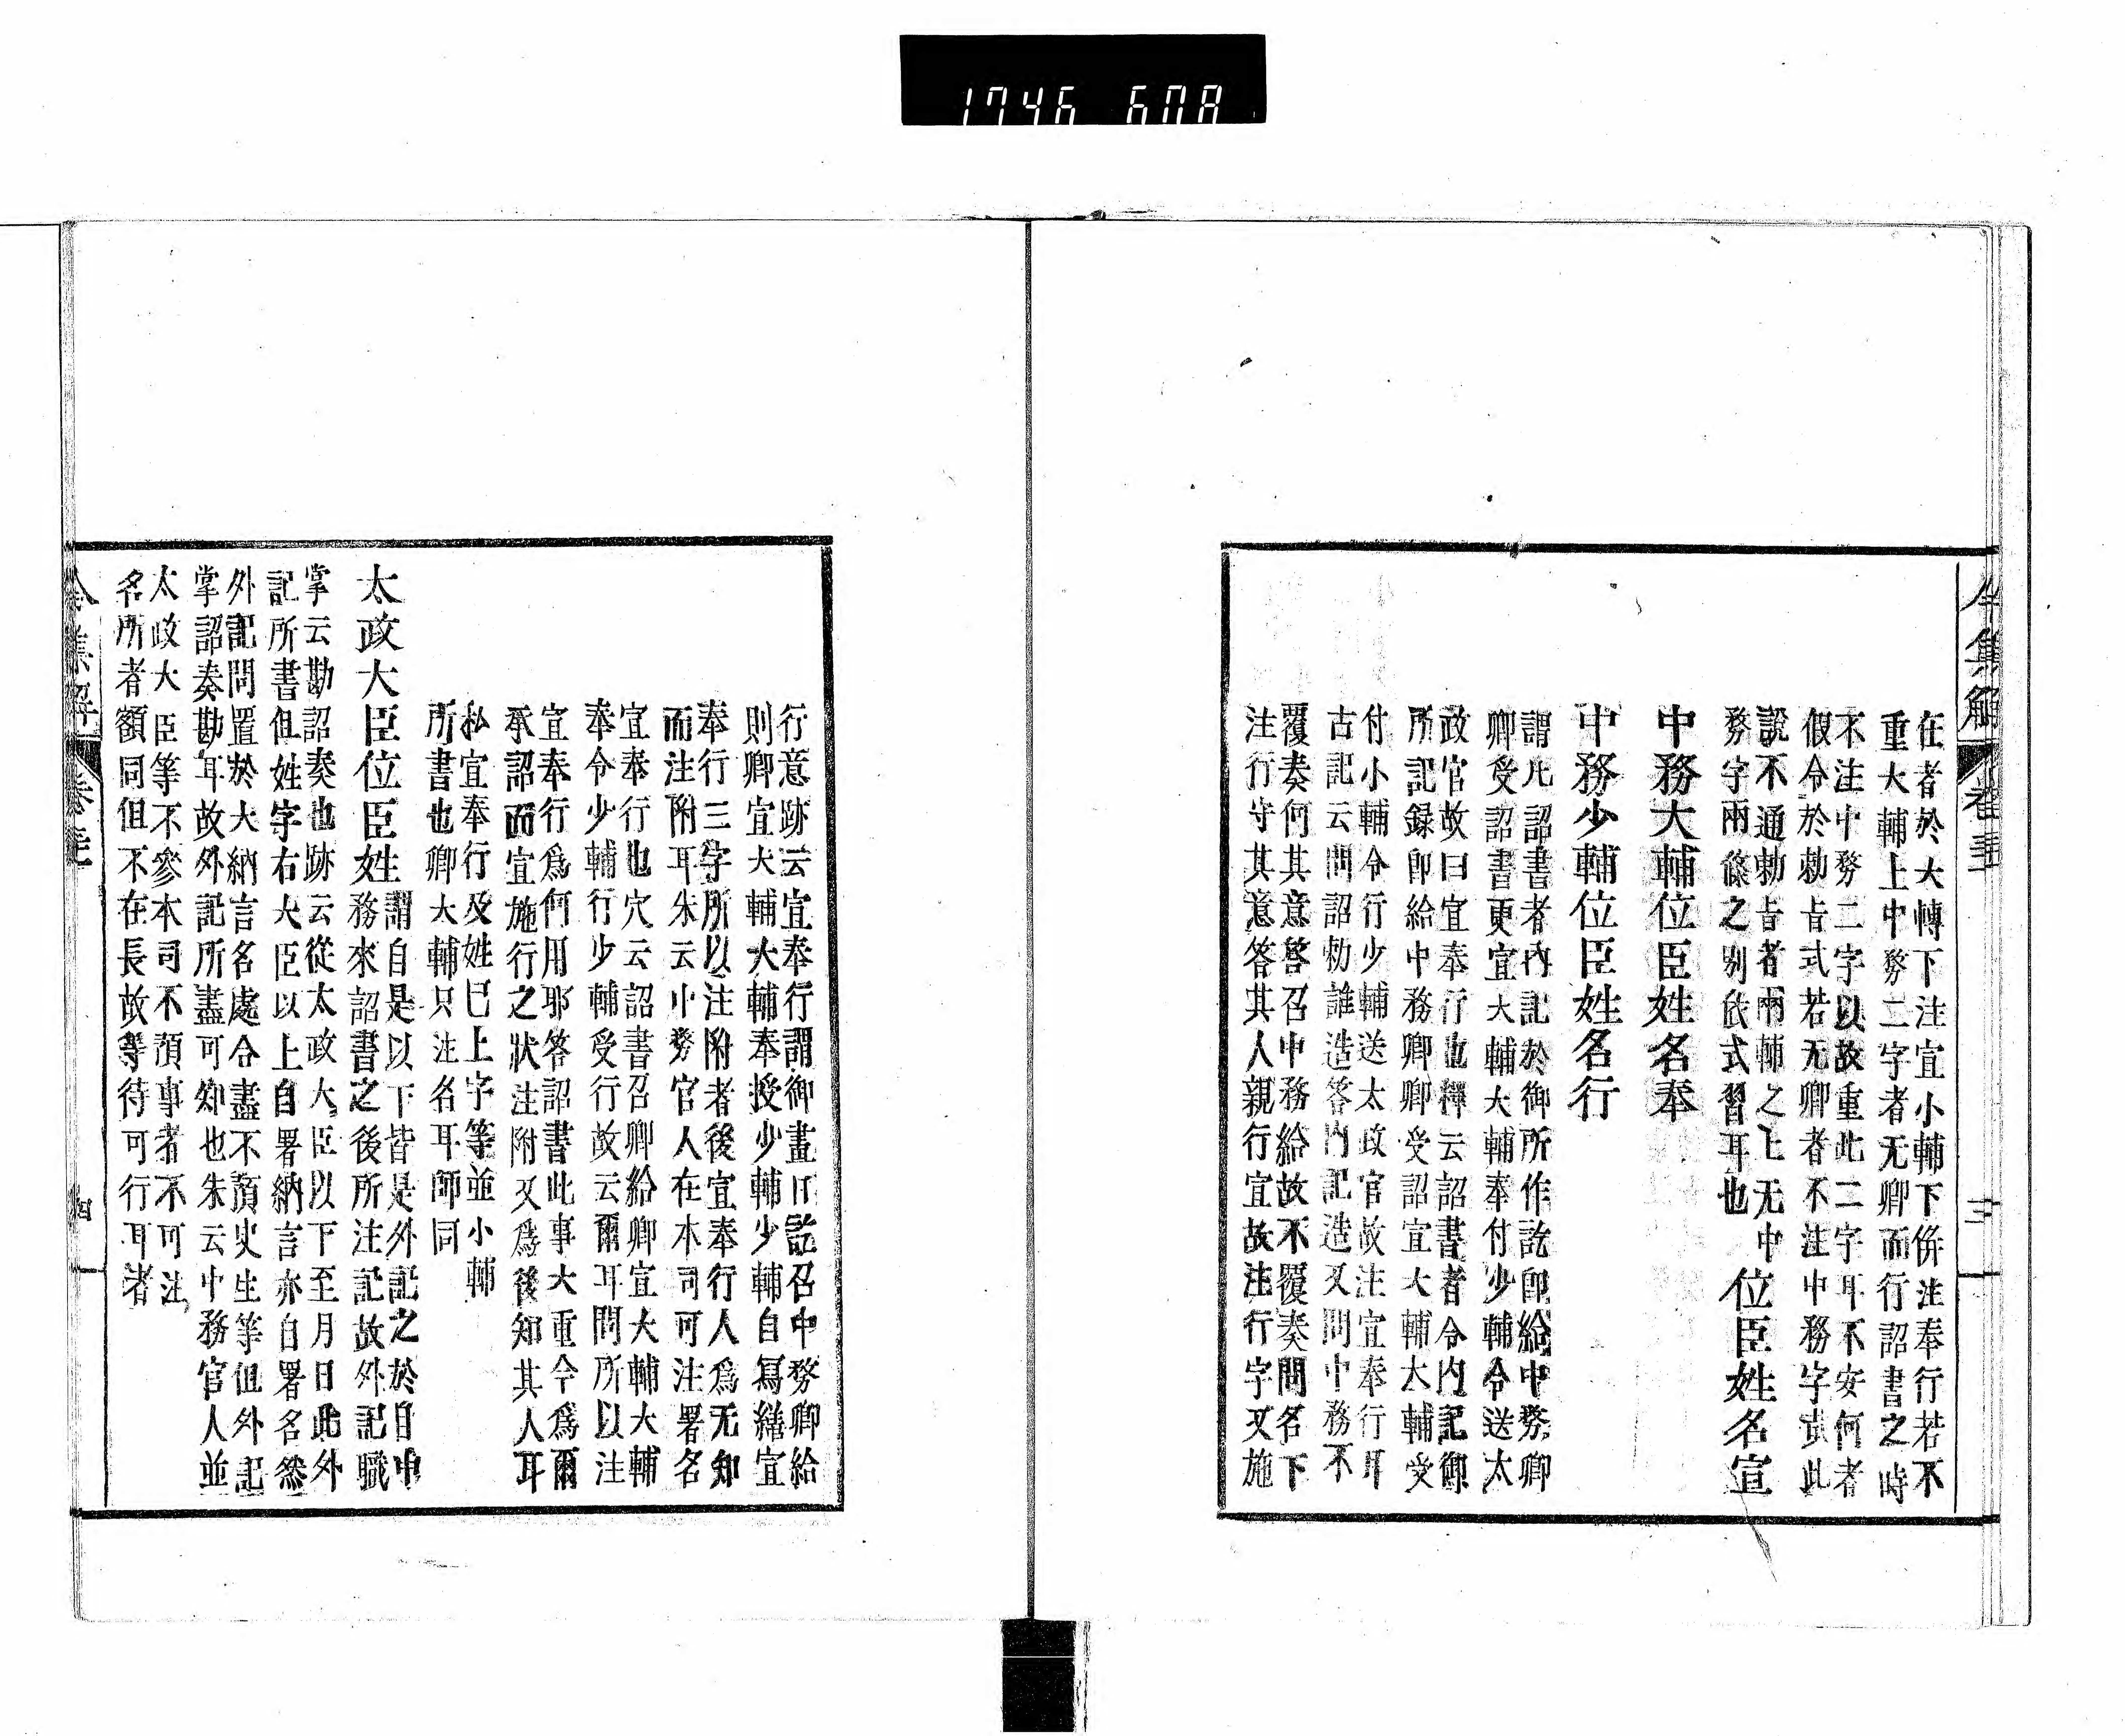 1746 608
令集解 卷三十一 三
在者於大輔下注宣小輔下併注奉行若不
重大輔上中務二字者无卿而行詔書之時
不注中務二字以故重此二字耳不安何者
假令於勅旨式若无卿者不注中務字哉此
説不通勅旨者兩輔之上无中
務字兩條之別依式習耳也
位臣姓名宣
中務大輔位臣姓名奉
中務少輔位臣姓名行
謂凡詔書者內記於御所作訖即給中務卿
卿受詔書更宣大輔大輔奉付少輔令送太
政官故曰宣奉行也釋云詔書者令內記御
所記録即給中務卿卿受詔宣大輔大輔受
付小輔令行少輔送太政官故注宣奉行耳
古記云問詔勅誰造答內記造又問中務不
覆奏何其意答召中務給故不覆奏問名下
注行守其意答其人親行宣故注行字又施
行意跡云宣奉行謂御畫日訖召中務卿給
則卿宣大輔大輔奉授少輔少輔自寫繕宣
奉行三字所以注附者後宣奉行人爲无知
而注附耳朱云中務官人在本司可注署名
宣奉行也穴云詔書召卿給卿宣大輔大輔
奉令少輔行少輔受行故云爾耳問所以注
宣奉行爲何用耶答詔書此事大重令爲爾
承詔而宣施行之狀注附又爲後知其人耳
私宣奉行及姓已上字等並小輔
所書也卿大輔只注名耳師同
太政大臣位臣姓
謂自是以下皆是外記之於自中
務來詔書之後所注記故外記職
掌云勘詔奏也跡云從太政大臣以下至月日此外
記所書但姓字右大臣以上自署納言亦自署名然
外記問置於大納言名處令盡不預史生等但外記
掌詔奏勘耳故外記所盡可知也朱云中務官人並
太政大臣等不參本司不預事者不可注
名所者額同但不在長故等待可行耳者
令集解 卷三十一 四